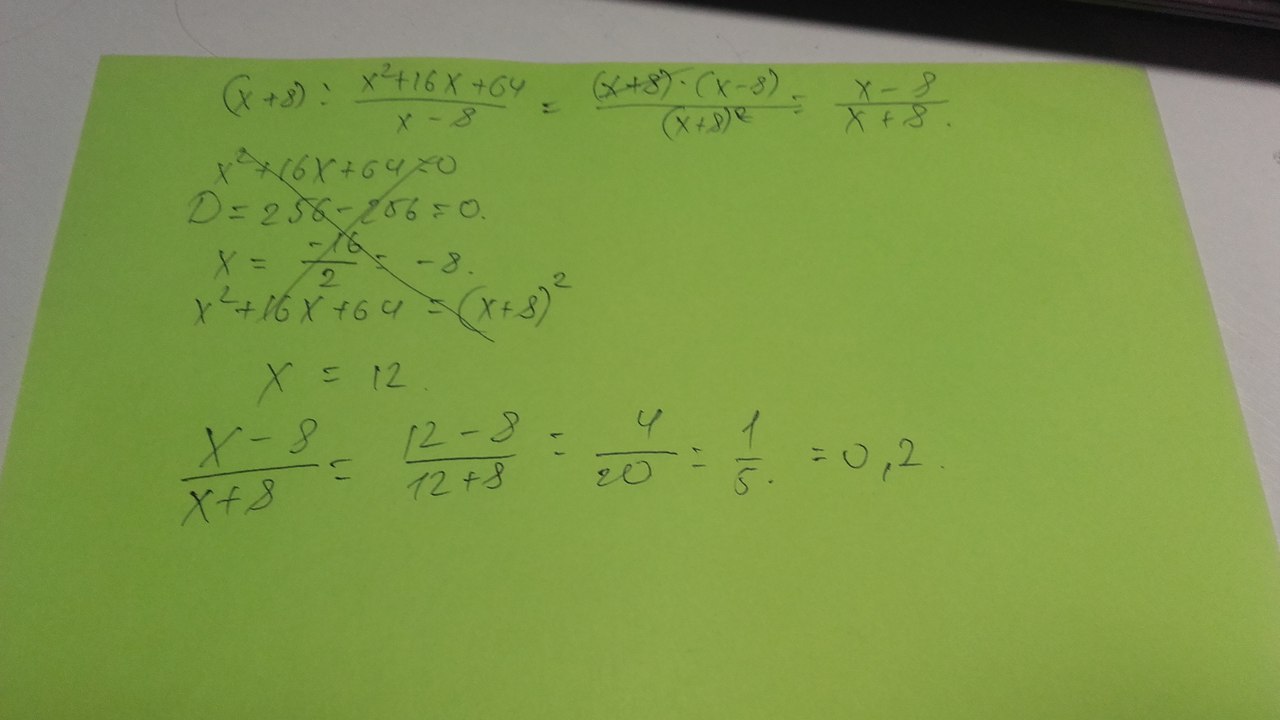 (x+8) : (x²+16x+64)/(x-8) = ((x+8)·(x-8))/(x+8)² = (x-8)/(x+8).
x²+16x+64=0
D=256-256=0.
x = -16/2 = -8.
x²+16x+64 = (x+8)²
x = 12.
(x-8)/(x+8) = (12-8)/(12+8) = 4/20 = 1/5. = 0,2.